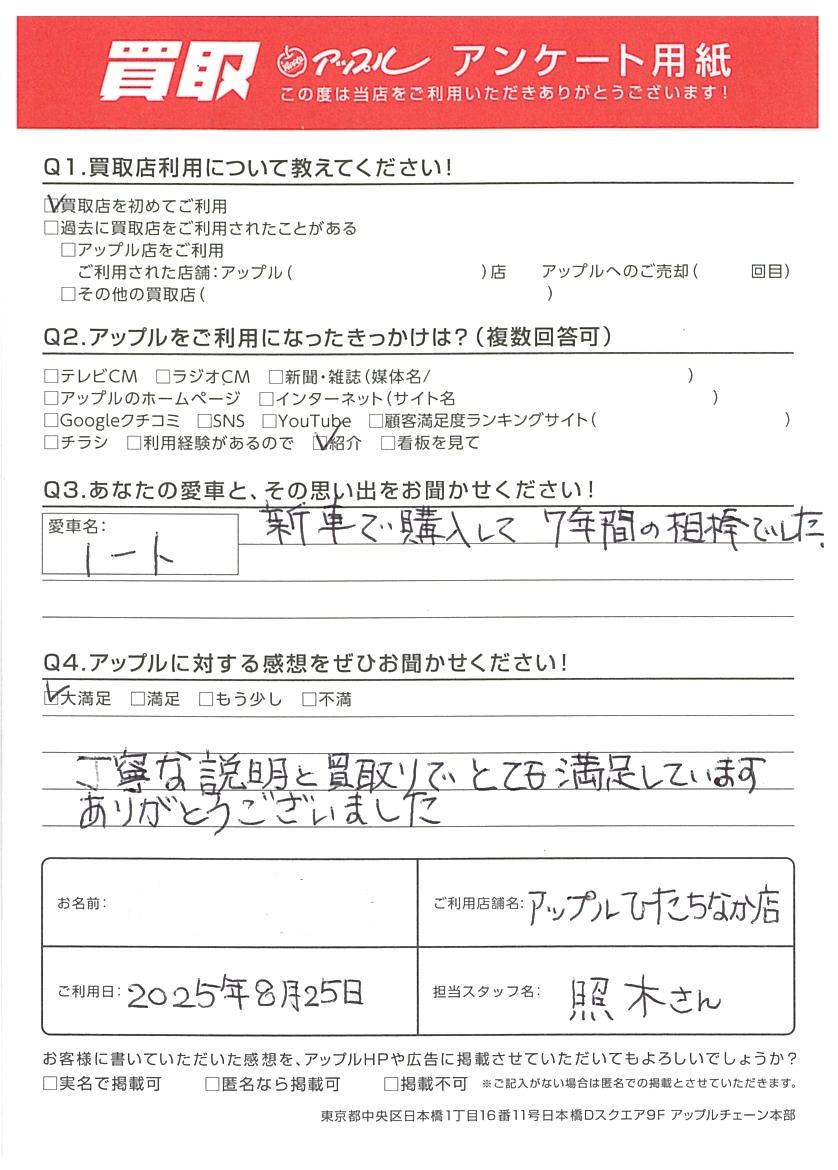 買取 アップル アンケート用紙
この度は当店をご利用いただきありがとうございます！
Q1.買取店利用について教えてください！
☑買取店を初めてご利用
□過去に買取店をご利用されたことがある
□アップル店をご利用
ご利用された店舗：アップル（　　　）店　アップルへのご売却（　　　回目）
□その他の買取店（　　　）
Q2.アップルをご利用になったきっかけは？（複数回答可）
□テレビCM　□ラジオCM　□新聞・雑誌（媒体名/　　　）
□アップルのホームページ　□インターネット（サイト名　　　）
□Googleクチコミ　□SNS　□YouTube　□顧客満足度ランキングサイト（　　　）
□チラシ　□利用経験があるので　☑紹介　□看板を見て
Q3.あなたの愛車と、その思い出をお聞かせください！
愛車名：
ノート
新車で購入して 7年間の相棒でした。
Q4.アップルに対する感想をぜひお聞かせください！
☑大満足　□満足　□もう少し　□不満
丁寧な説明と買取りで とても満足しています
ありがとうございました
お名前：
ご利用店舗名：アップルひたちなか店
ご利用日：2025年8月25日
担当スタッフ名：照木さん
お客様に書いていただいた感想を、アップルHPや広告に掲載させていただいてもよろしいでしょうか？
□実名で掲載可　□匿名なら掲載可　□掲載不可　※ご記入がない場合は匿名での掲載とさせていただきます。
東京都中央区日本橋1丁目16番11号日本橋Dスクエア9F アップルチェーン本部